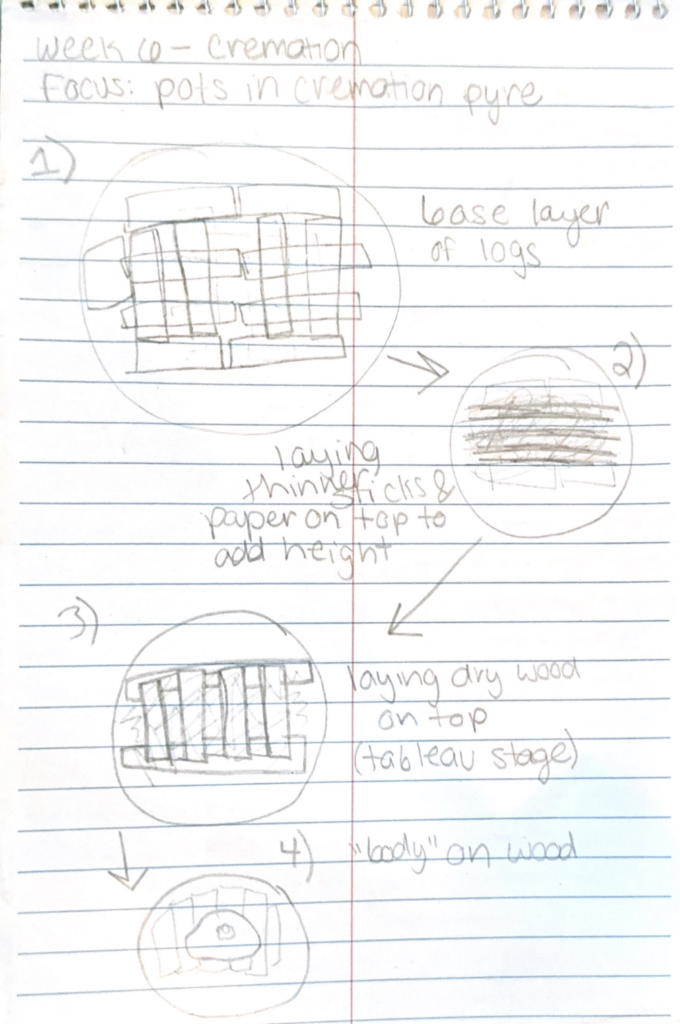 week 6 - cremation
Focus: pots in cremation pyre
1)
base layer
of logs
2)
laying
thinner sticks &
paper on top to
add height
3)
laying dry wood
on top
(tableau stage)
4) "body" on wood